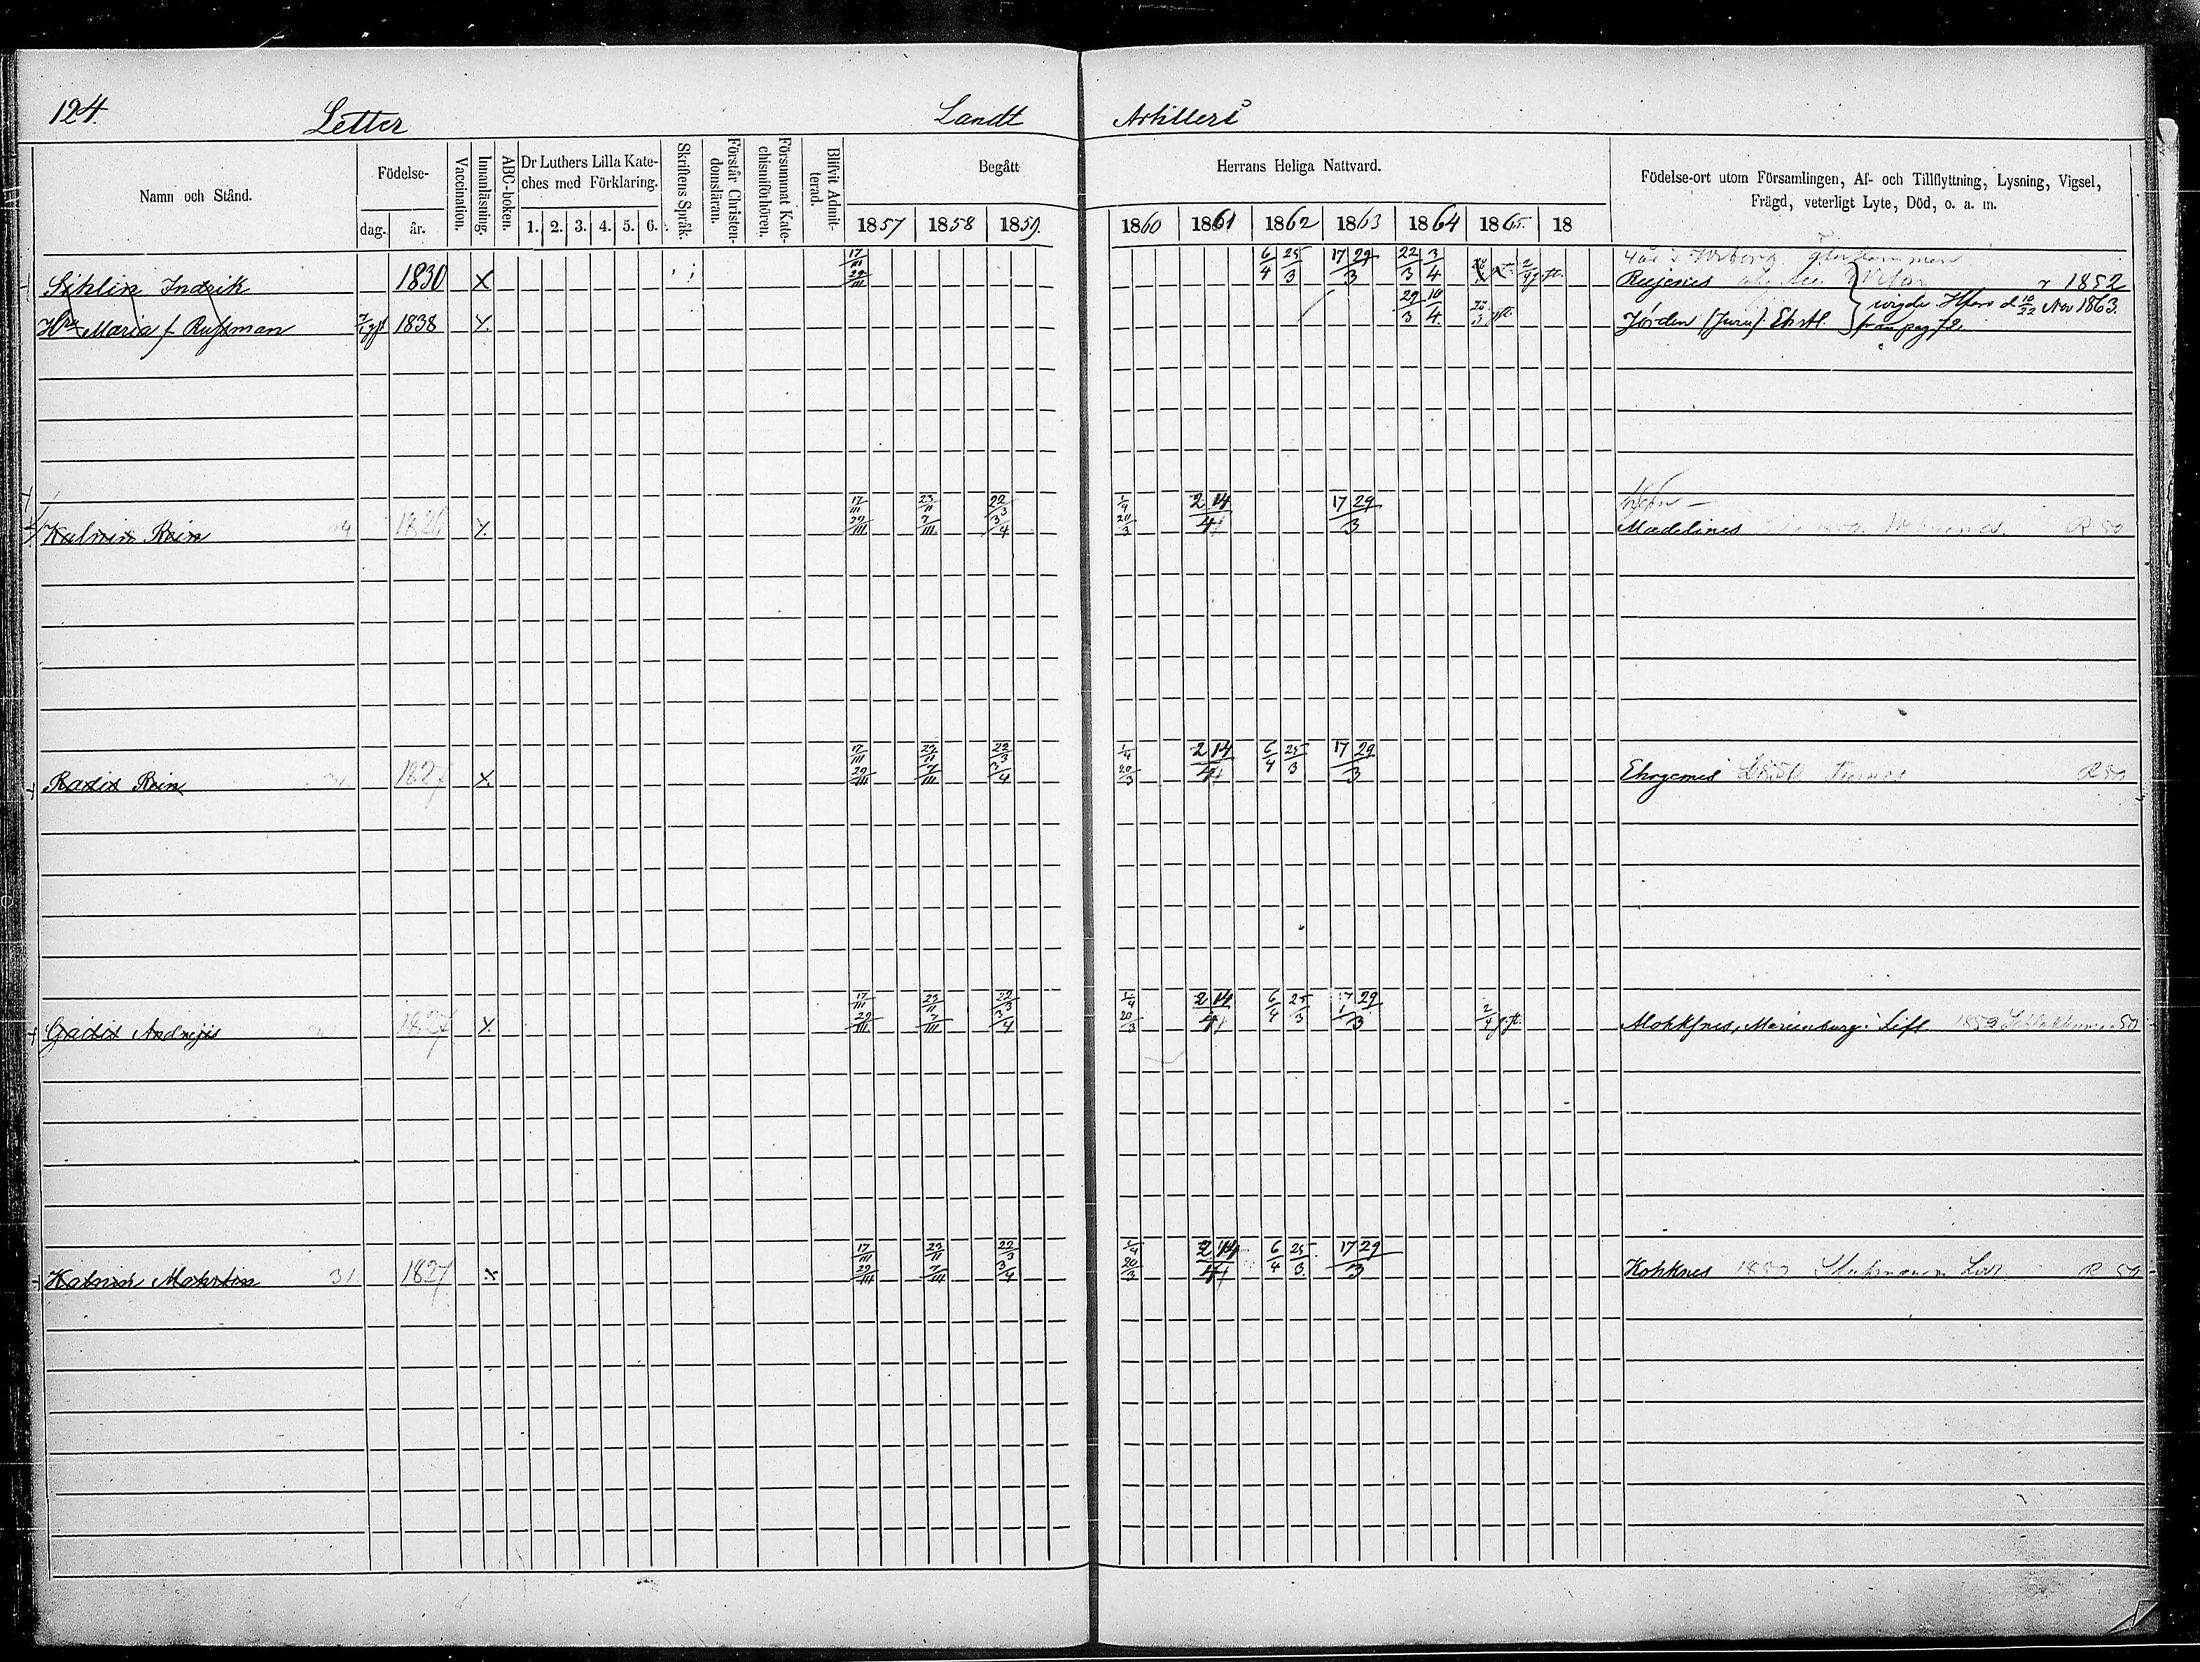 124. Letter Landt Artilleri
Namn och Stånd.
Födelse-
dag. år.
Vaccination.
Innanläsning.
ABC-boken.
Dr Luthers Lilla Kate-
ches med Förklaring.
1. 2. 3. 4. 5. 6.
Skriftens Språk.
Förstår Christen-
domsläran.
Försummat Kate-
chismiförhören.
Blifvit Admit-
terad.
Begått Herrans Heliga Nattvard.
1857 1858 1859. 1860 1861 1862 1863 1864 1865. 18
Födelse-ort utom Församlingen, Af- och Tillflyttning, Lysning, Vigsel,
Frägd, veterligt Lyte, Död, o. a. m.
Sihlin Indrik 1830 X 17/III 29/III 6/4 25/3 17 29/3 22/3 3/4 Rujenes r 1852
Hru Maria f. Russman 1838 X. 29/3 10/4 Jörden (Juru) Estl. från pag 72. wigde Hfors d 10/22 Nov 1863.
Kalnin Rein 1826 X. 17/III 29/III 23/II 7/III 22/3 3/4 1/4 20/3 2 14/4 17 29/3 Madelines R 50
Radis Rein 1827 X. 17/III 29/III 23/II 7/III 22/3 3/4 1/4 20/3 2 14/4 6/4 25/3 17 29/3 Ehrgemes R 50
Gaidis Andrejs 1827 X. 17/III 29/III 23/II 7/III 22/3 3/4 1/4 20/3 2 14/4 6/4 25/3 17 29/3 Marienburg. Lifl 50
Kalnin Mahrtin 31 1827 X 17/III 29/III 23/II 7/III 22/3 3/4 1/4 20/3 2 14/4 6/4 25/3 17 29/3 Kohknes 1850 R 50